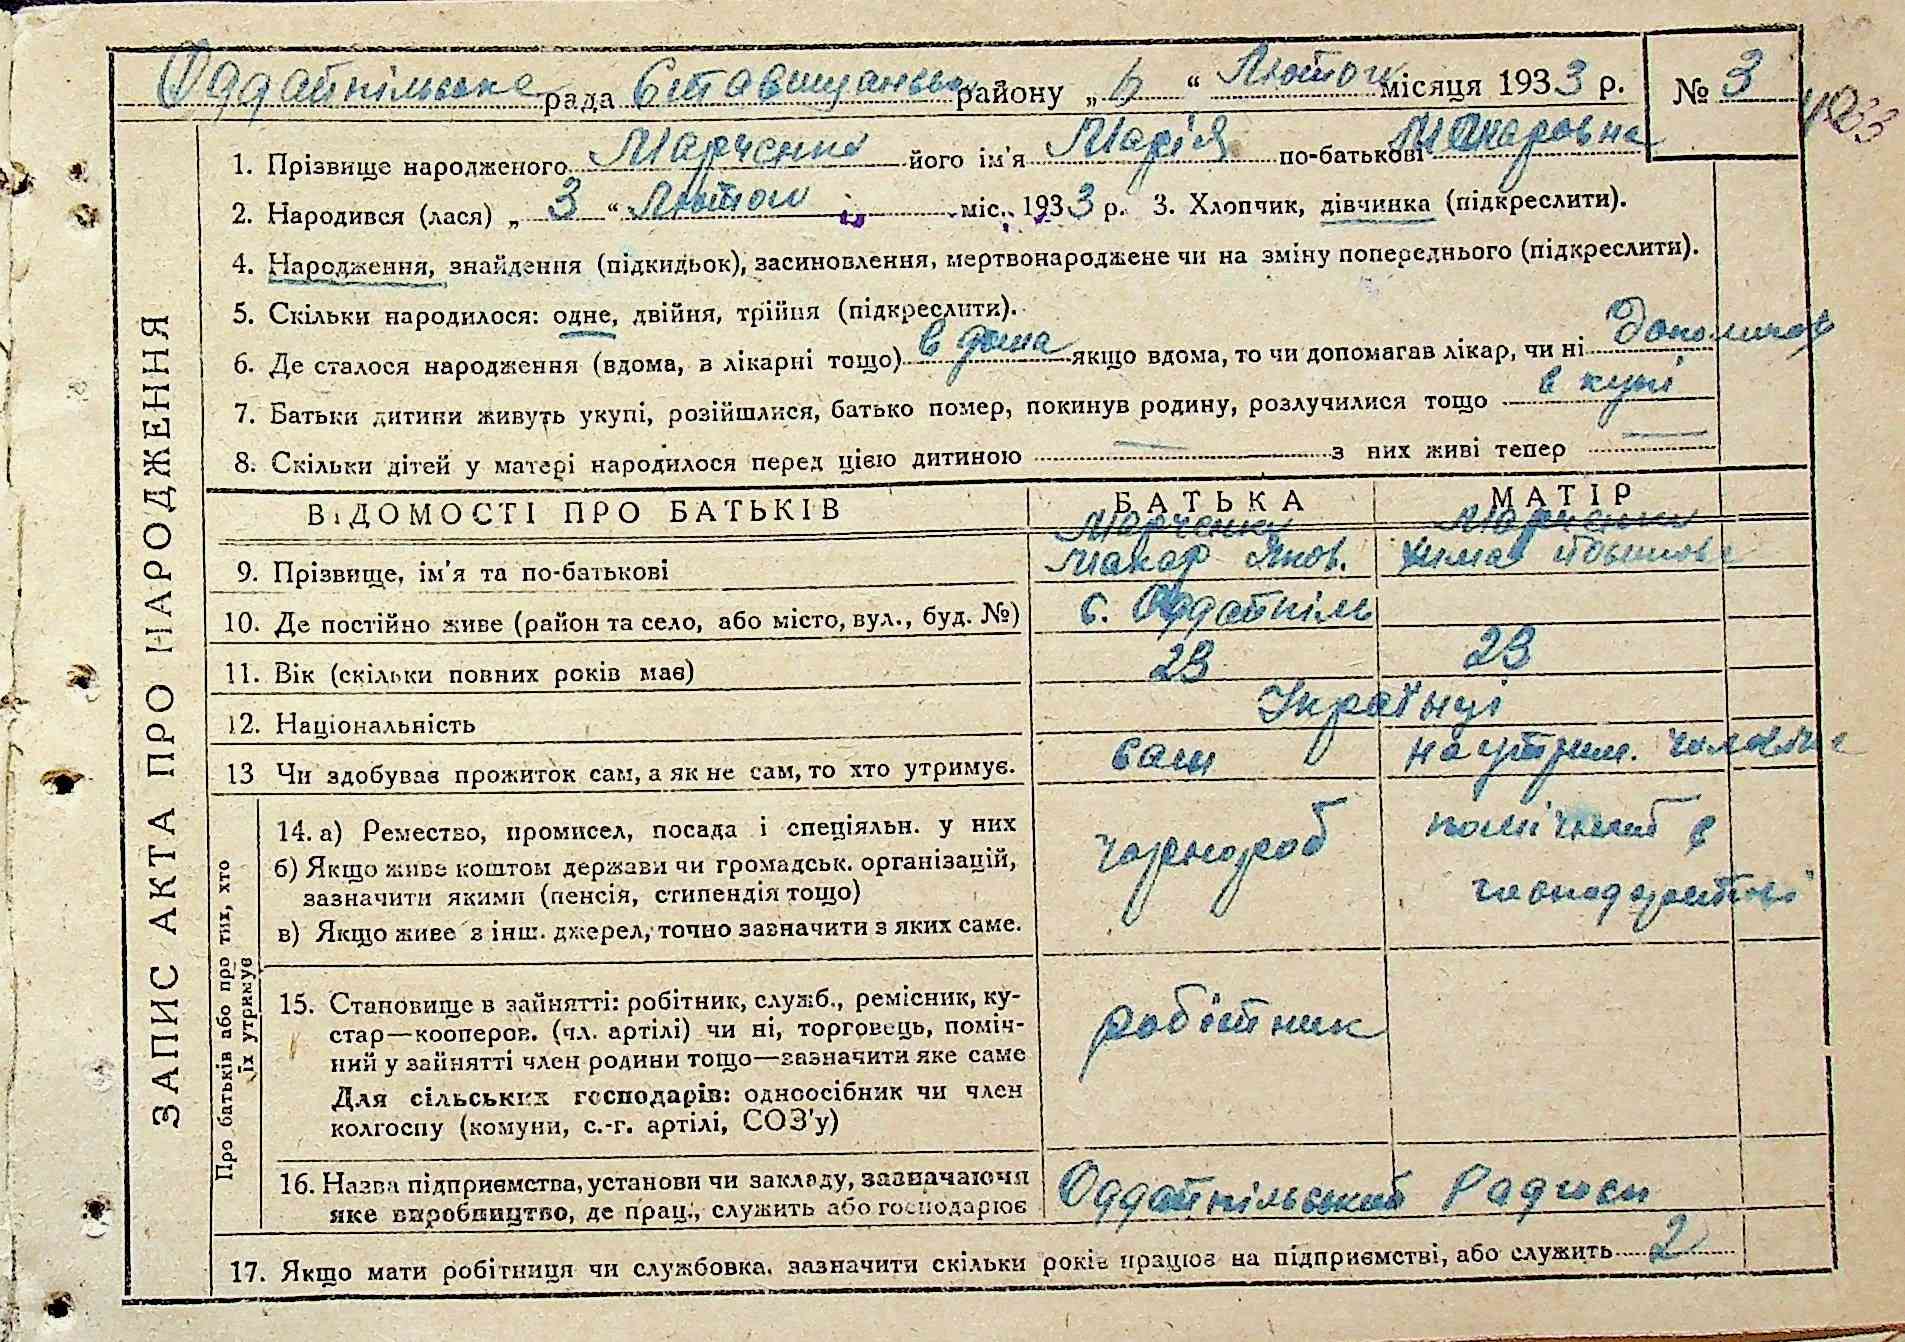 Оддайпільська рада Ставищанськ району „ 6 “ Лютого місяця 1933 р. № 3
1. Прізвище народженого Марченко його ім'я Марія по-батькові Макаровна
2. Народився (лася) „ 3 “ Лютого міс. 1933 р. 3. Хлопчик, дівчинка (підкреслити).
4. Народження, знайдення (підкидьок), засиновлення, мертвонароджене чи на зміну попереднього (підкреслити).
5. Скільки народилося: одне, двійня, трійня (підкреслити).
6. Де сталося народження (вдома, в лікарні тощо) в дома якщо вдома, то чи допомагав лікар, чи ні
7. Батьки дитини живуть укупі, розійшлися, батько помер, покинув родину, розлучилися тощо в купі
8. Скільки дітей у матері народилося перед цією дитиною — з них живі тепер —
ЗАПИС АКТА ПРО НАРОДЖЕННЯ
ВІДОМОСТІ ПРО БАТЬКІВ БАТЬКА МАТІР
Марченко Марченко
9. Прізвище, ім'я та по-батькові Макар Яков. Хима
10. Де постійно живе (район та село, або місто, вул., буд. №) с. Оддайпіль
11. Вік (скільки повних років має) 23 23
12. Національність Українці
13 Чи здобував прожиток сам, а як не сам, то хто утримує. сам на утрим. чоловіка
Про батьків або про тих, хто їх утримує
14. а) Ремество, промисел, посада і спеціяльн. у них чорнороб помічниця в
б) Якщо живе коштом держави чи громадськ. організацій,
зазначити якими (пенсія, стипендія тощо) господарстві
в) Якщо живе з інш. джерел, точно зазначити з яких саме.
15. Становище в зайнятті: робітник, служб., ремісник, ку-
стар—кооперов. (чл. артілі) чи ні, торговець, поміч- робітник
ний у зайнятті член родини тощо—зазначити яке саме
Для сільських господарів: одноосібник чи член
колгоспу (комуни, с.-г. артілі, СОЗ'у)
16. Назва підприємства, установи чи закладу, зазначаючи Оддайпільський Радгосп
яке виробництво, де прац., служить або господарює
17. Якщо мати робітниця чи службовка, зазначити скільки років працює на підприємстві, або служить 2